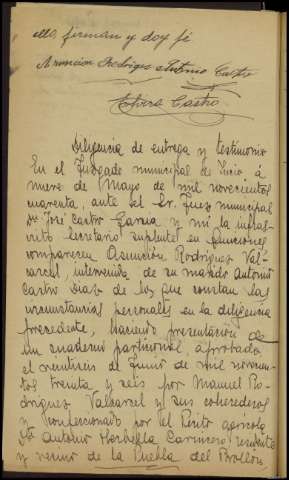 ella firman y doy fe
Asuncion Rodriguez Antonio Castro
Elvira Castro
Diligencia de entrega y testimonio
En el Juzgado municipal de Incio, á
nueve de Mayo de mil novecientos
cuarenta, ante el Sr. Juez municipal
Dn José Castro Garcia y mi la infras-
crito Secretario suplente en funciones
comparecen Asunción Rodriguez Val-
carcel, intervenida de su marido Antonio
Castro Diaz de los que constan las
circunstancias personales en la diligencia
precedente, haciendo presentación de
un cuaderno particional, aprobado
el veintiuno de Junio de mil novecien-
tos treinta y seis por Manuel Ro-
driguez Valcarcel y sus coherederos
y confeccionado por el Perito agricola
Dn Antonio Herbella Carnicero, residente
y vecino de la Puebla del Brollón